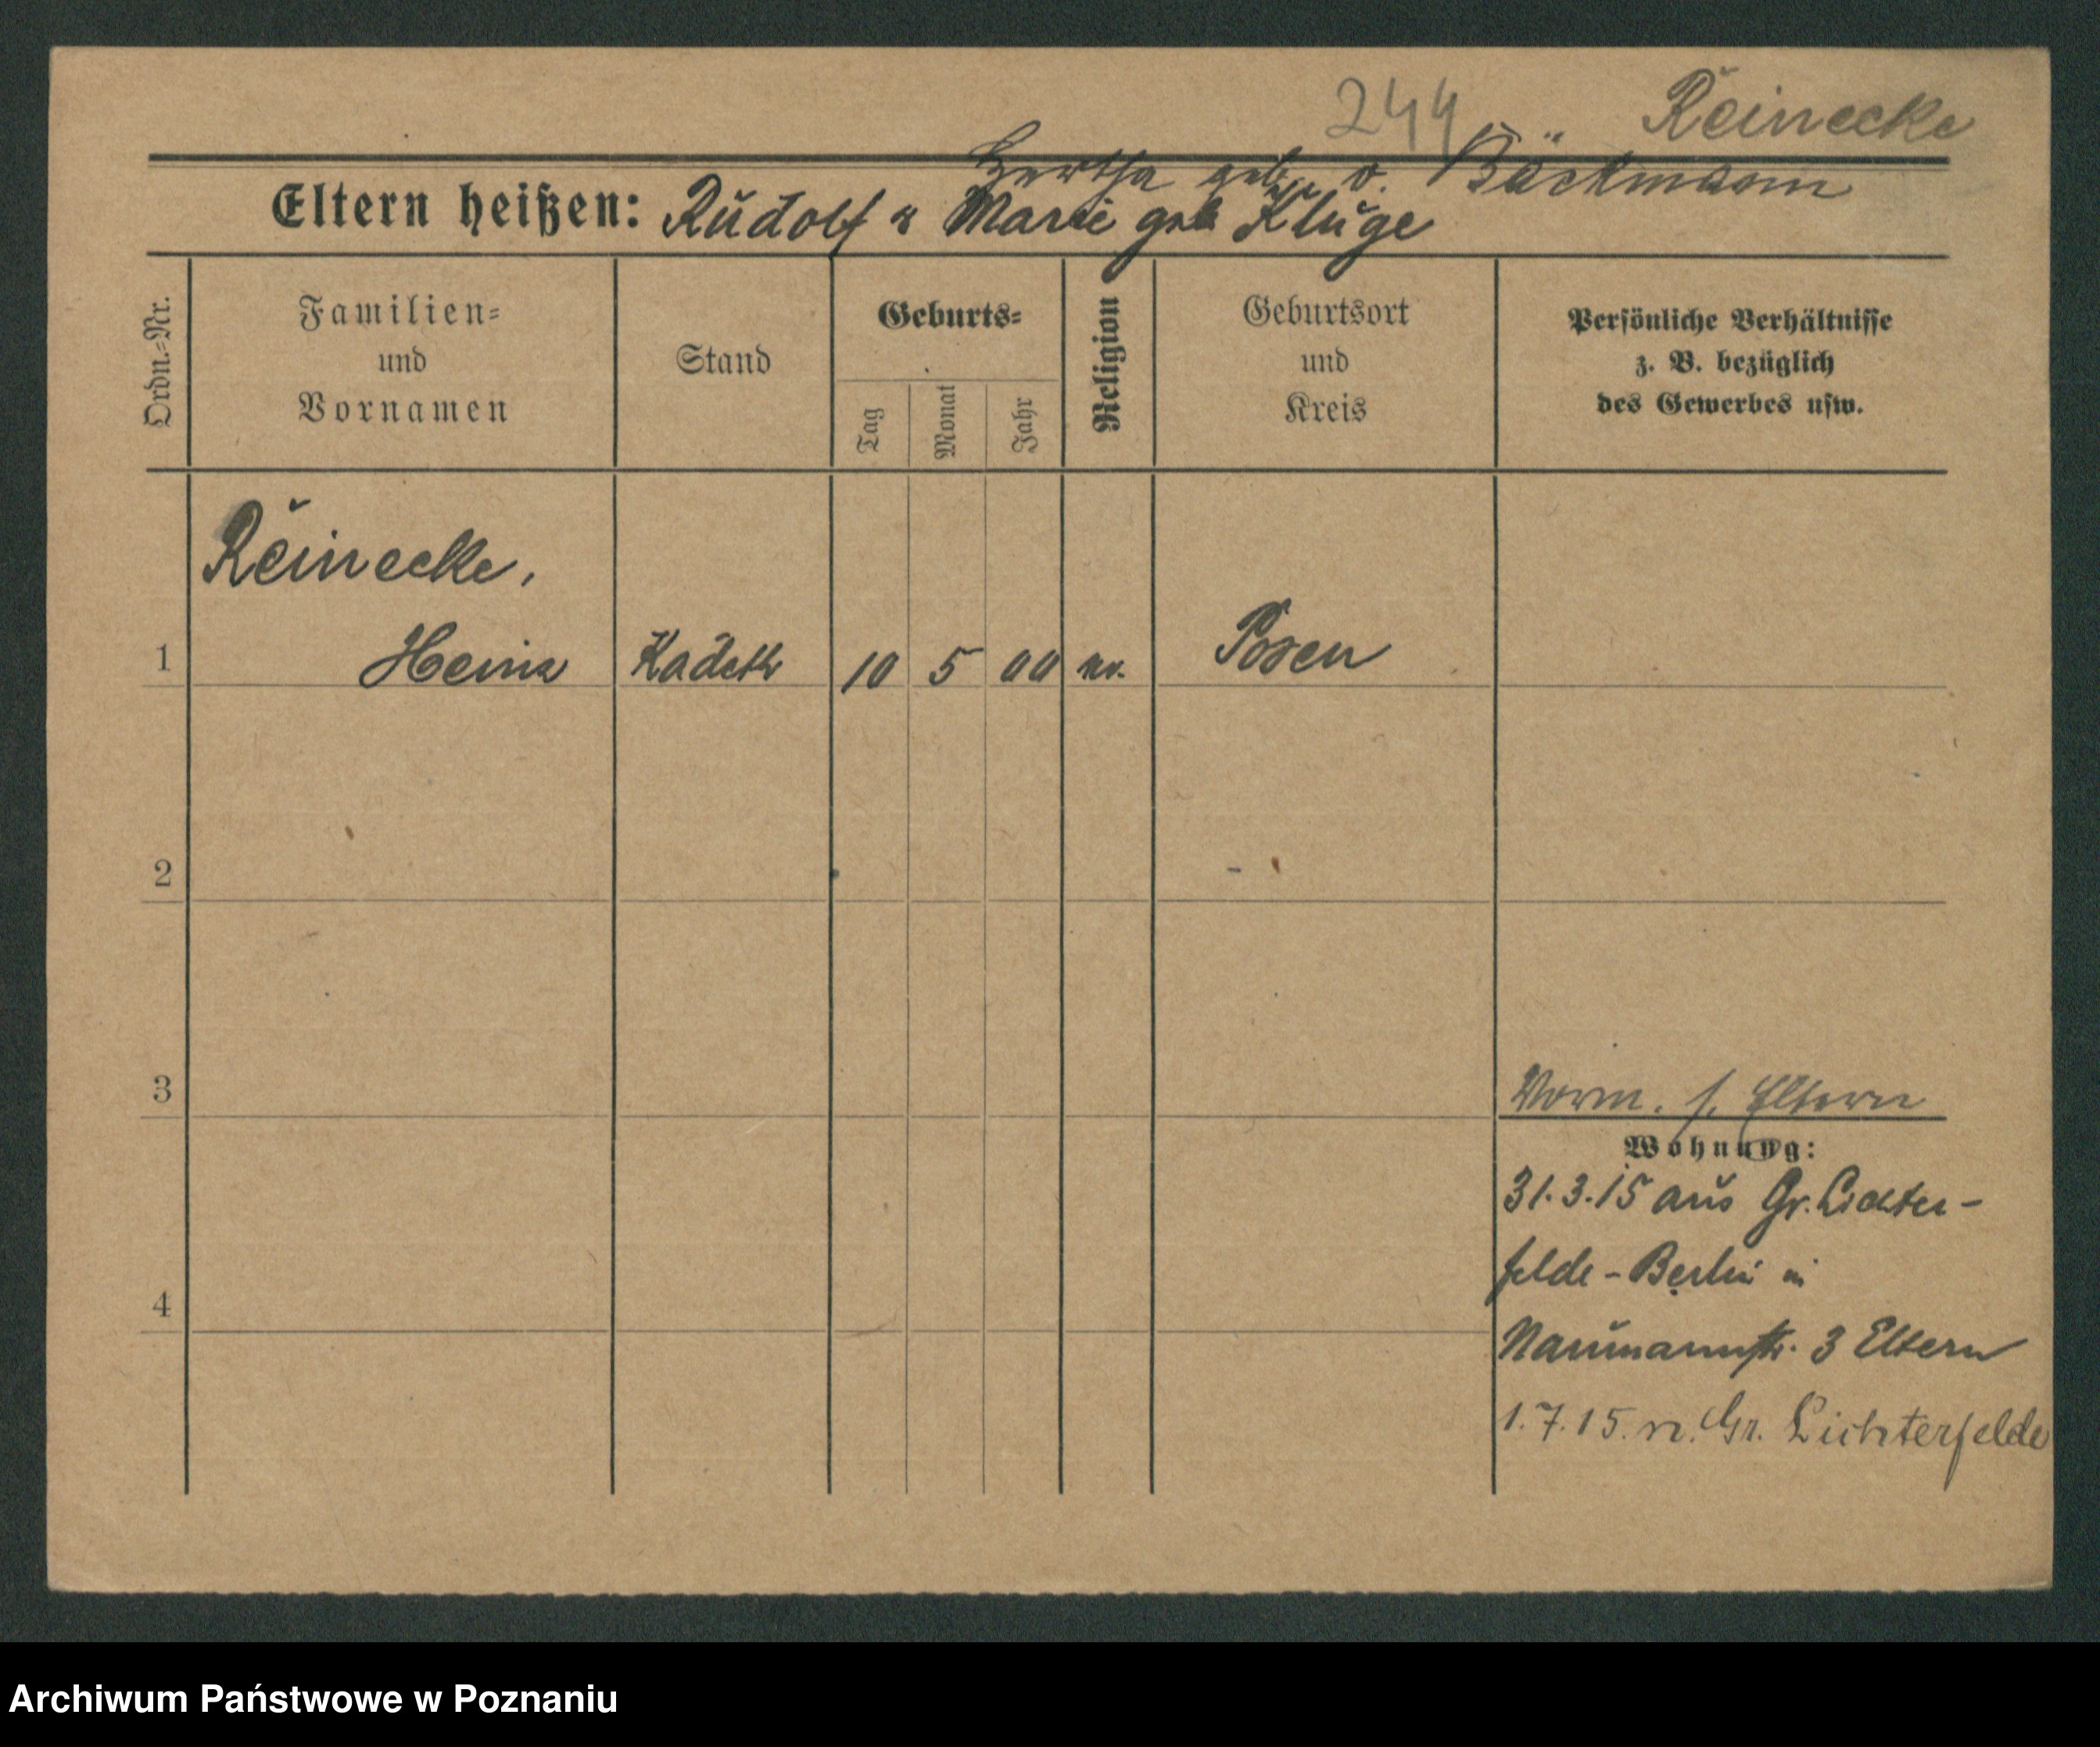 244 Reinecke
Hertha geb. v. Bäckmann
Eltern heißen: Rudolf u Marie geb Kluge
Ordn.-Nr.
Familien-
und
Vornamen
Stand
Geburts-
Tag
Monat
Jahr
Religion
Geburtsort
und
Kreis
Persönliche Verhältnisse
z. B. bezüglich
des Gewerbes usw.
Reinecke,
1 Heinz Kadett 10 5 00 ev. Posen
2
3 Vorm. s. Eltern
Wohnung:
31.3.15 aus Gr. Lichter-
felde-Berlin in
4
Naumannstr. 3 Eltern
1.7.15. n. Gr. Lichterfelde
Archiwum Państwowe w Poznaniu